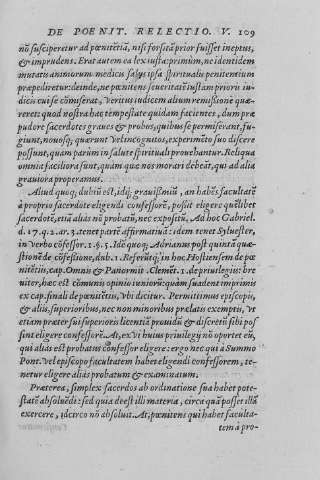 DE POENIT. RELECTIO. V. 109
nō susciperetur ad pœnitētiā, nisi forsitā prior fuisset ineptus,
& imprudens. Erat autem ea lex iusta: primum, ne identidem
mutatis animorum medicis salus ipsa spiritualis penitentium
præpediretur: deinde, ne pœnitens seueritatē iustam prioris iu-
dicis cui se cōmiserat, veritus iudicem alium remissiorē quæ-
reret: quod nostra hac tempestate quidam facientes, dum præ
pudore sacerdotes graues & probos, quibus se permiserant, fu-
giunt, nouosq; quærunt vel incognitos, experimēto suo discere
possunt, quàm parùm in salute spirituali prouehantur. Reliqua
omnia faciliora sunt, quàm que nos morari debeāt, qui ad alia
grauiora properamus.
Aliud quoq; dubiū est, idq; grauissimū, an habēs facultatē
à proprio sacerdote eligendi confessorē, possit eligere quēlibet
sacerdotē, etiā aliàs nō probatū, nec expositū. Ad hoc Gabriel.
d. 17. q. 2. ar. 3. tenet partē affirmatiuā: idem tenet Syluester,
in verbo cōfessor. 1. §. 5. Idē quoq; Adrianus post quintā quæ-
stionē de cōfessione, dub. 1. Referūtq; in hoc Hostiensem de pœ
nitētijs, cap. Omnis & Panormit. Clemēt. 2. de priuilegijs: bre
uiter, hæc est cōmunis opinio iuniorū: quàm suadent imprimis
ex cap. finali de pœnitētijs, vbi dicitur. Permittimus episcopis,
& alijs superioribus, nec non minoribus prælatis exemptis, vt
etiam præter sui superioris licentiā prouidū & discretū sibi pos
sint eligere cōfessorē. At, ex vi huius priuilegij nō oportet eū,
qui aliàs est probatus cōfessor eligere: ergo nec qui a Summo
Pont. vel episcopo facultatem habet eligendi confessorem, te-
netur eligere aliàs probatum & examinatum.
Præterea, simplex sacerdos ab ordinatione sua habet pote-
statē absoluēdi: sed quia deest illi materia, circa quā posset illā
exercere, idcirco nō absoluit. At, pœnitens qui habet faculta-
tem à pro-